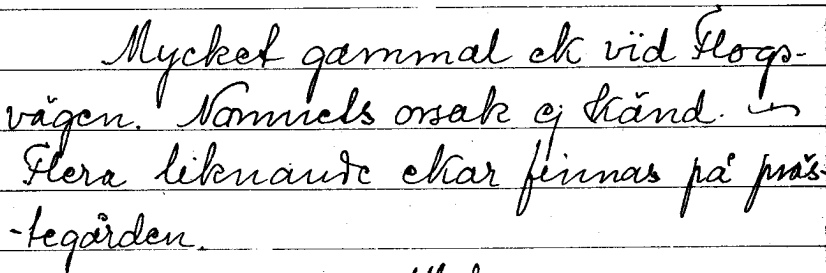 Mycket gammal ek vid Flogs-
vägen. Namnets orsak ej känd. —
Flera liknande ekar finnas på präs-
-tegården.